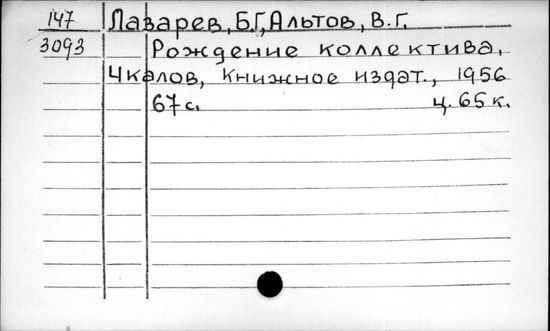 147 Лазарев, Б.Г., Альтов, В.Г.
3093 Рождение коллектива.
Чкалов, книжное издат., 1956
67 с. ц. 65 к.